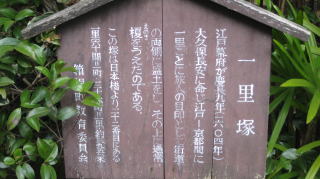 一里塚
江戸幕府が慶長九年(一六〇四)
大久保長安に命じ江戸-京都間に
一里ごとに旅人の目印として街道
の両側に盛土をし、その上に通常
榎をうえたのである。
この塚は日本橋より二十二番目にある
箱根町教育委員会